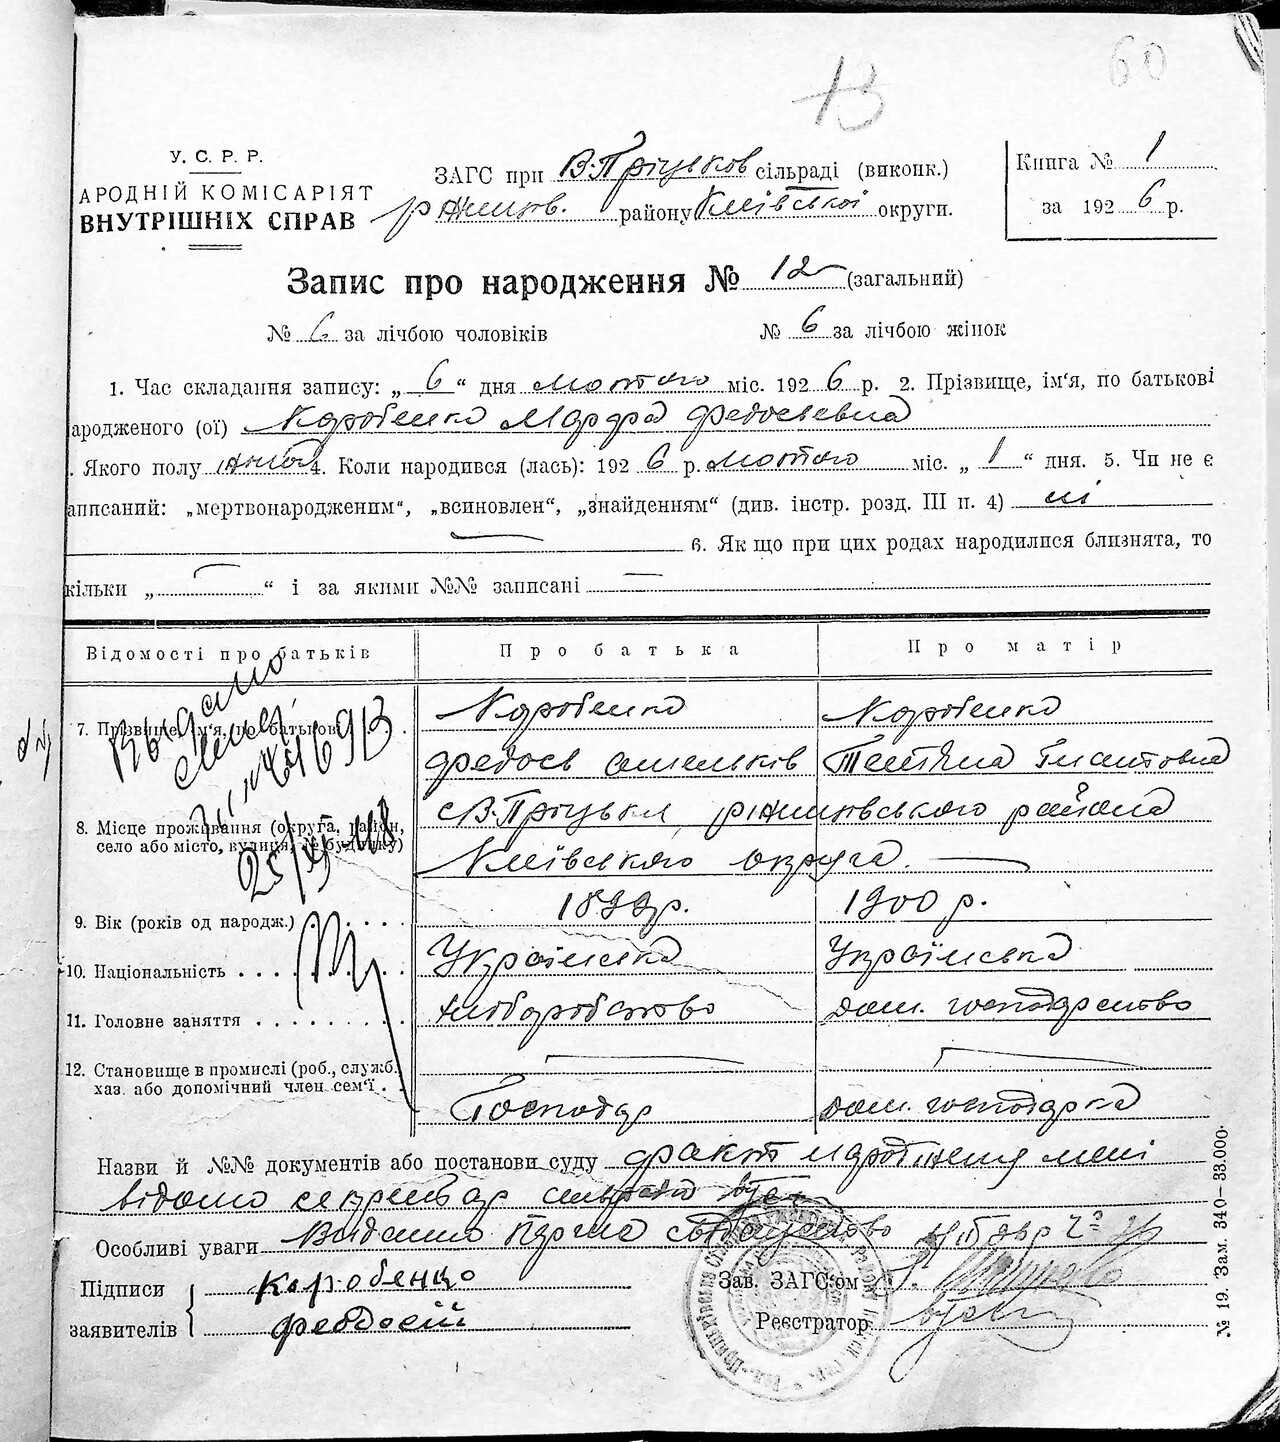 13
60
У. С. Р. Р.
АРОДНІЙ КОМІСАРІЯТ
ВНУТРІШНІХ СПРАВ
ЗАГС при В-Пріцьков сільраді (виконк.)
ржищів. району Київської округи.
Книга № 1
за 1926 р.
Запис про народження № 12 (загальний)
№ 6 за лічбою чоловіків № 6 за лічбою жінок
1. Час складання запису: „6“ дня лютого міс. 1926 р. 2. Прізвище, ім'я, по батькові
ародженого (ої) Коробенко Марфа Федосьевна
. Якого полу жіноч 4. Коли народився (лась): 1926 р. лютого міс. „1“ дня. 5. Чи не є
аписаний: „мертвонародженим“, „всиновлен“, „знайденням“ (див. інстр. розд. III п. 4) ні
6. Як що при цих родах народилися близнята, то
кільки „ “ і за якими №№ записані
Відомості про батьків Про батька Про матір
7. Прізвище, ім'я, по батькові Коробенко Коробенко
Федось Тетяна
8. Місце проживання (округа, район, с В-Пріцьки, ржищівського района
село або місто, вулиця, № будинку) Київського округа.
9. Вік (років од народж.) 1899 р. 1900 р.
10. Національність Українська Українська
11. Головне заняття хліборобство дом. господарство
12. Становище в промислі (роб., служб.
хаз. або допомічний член сем'ї . . Господар дом. господарка
Выдано
25/XI-48
Назви й №№ документів або постанови суду факт народження мені
відомо секретар сільради
Особливі уваги Видано
Підписи Коробенко Зав. ЗАГС'ом
заявителів Федосій Реєстратор
№ 19. Зам. 340–33.000.